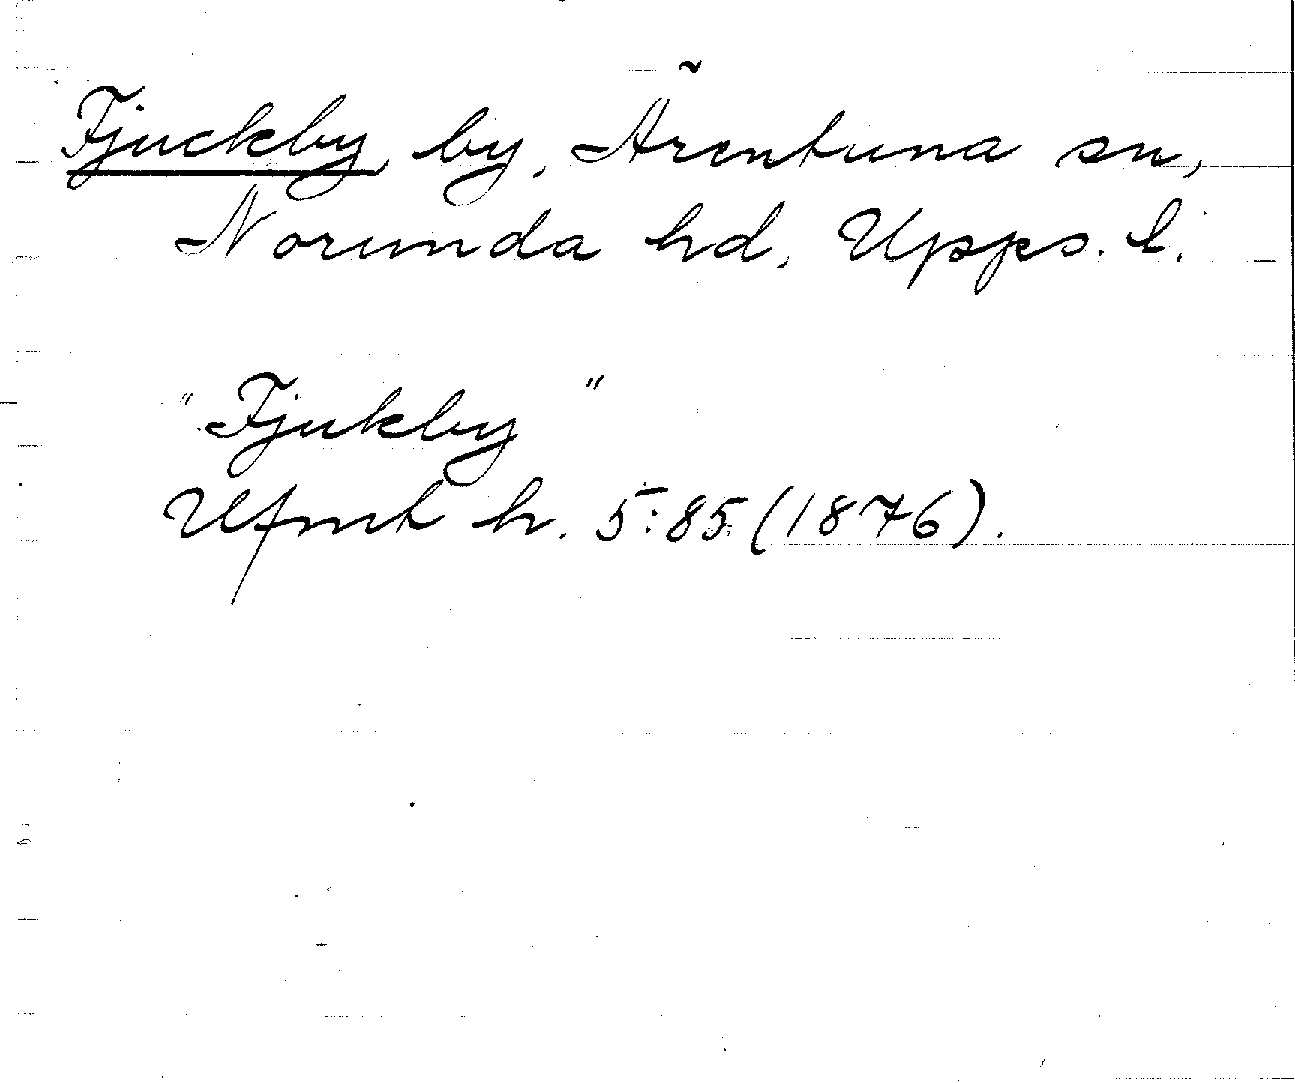 Fjuckby, by, Ärentuna sn,
Norunda hd, Upps. l.
"Fjukby"
Ufmt h. 5:85 (1876).